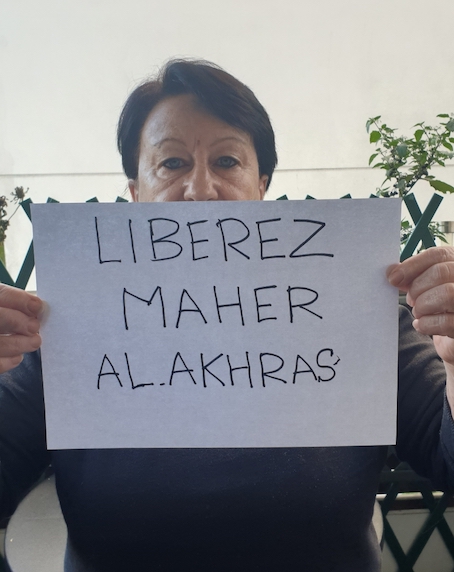 LIBEREZ
MAHER
AL.AKHRAS